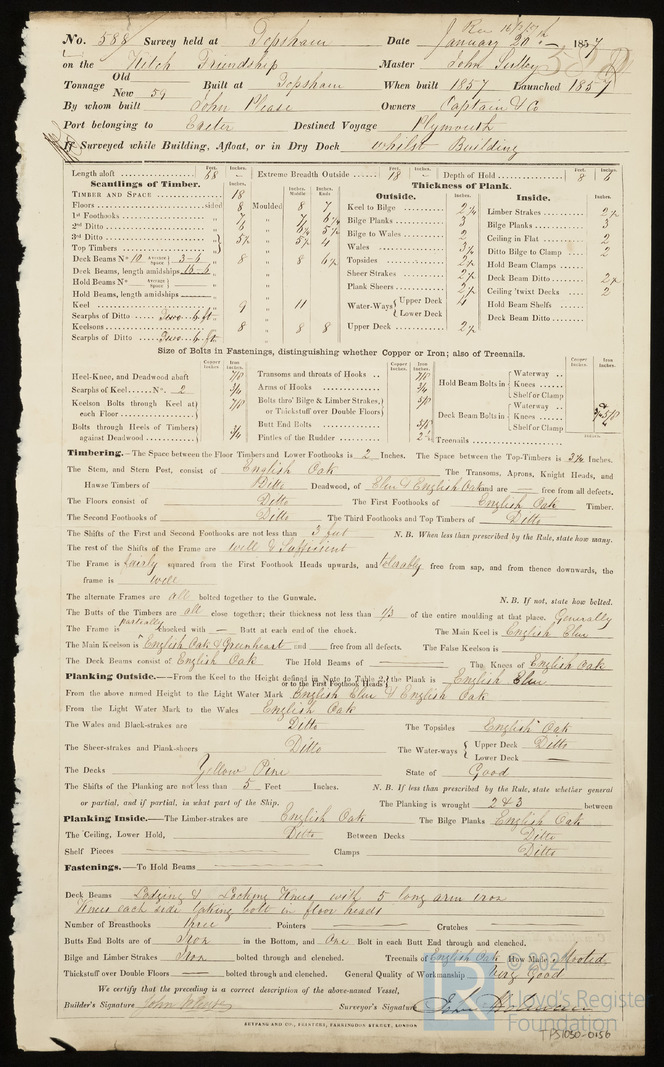 No. 588 Survey held at Topsham Date January 20th 1857
on the Ketch Friendship Master John Sulley
Tonnage Old New 59 Built at Topsham When built 1857 Launched 1857
By whom built John Please Owners Captain & Co
Port belonging to Exeter Destined Voyage Plymouth
If Surveyed while Building, Afloat, or in Dry Dock whilst Building
Feet. Inches. Feet. Inches. Feet. Inches.
Length aloft 68 Extreme Breadth Outside 18 Depth of Hold 8 6
Scantlings of Timber. Thickness of Plank.
Timber and Space 18
Outside. Inside.
Floors sided 8 Moulded 8 7 Keel to Bilge Limber Strakes
1st Foothooks 7 Bilge Planks 3 Bilge Planks 3
2nd Ditto 6 Bilge to Wales 2 Ceiling in Flat 2
3rd Ditto Wales Ditto Bilge to Clamp 2
Top Timbers Topsides Hold Beam Clamps
Deck Beams No 10 Average Space 3-6 8 8 Sheer Strakes Deck Beam Ditto
Deck Beams, length amidships 16-6 Plank Sheers Ceiling 'twixt Decks 2
Hold Beams No Average Space Water-Ways Upper Deck Hold Beam Shelfs
Hold Beams, length amidships Lower Deck Deck Beam Ditto
Keel 9 11 Upper Deck
Scarphs of Ditto Two 6 ft
Keelsons 8 8 8
Scarphs of Ditto Two 6 ft
Size of Bolts in Fastenings, distinguishing whether Copper or Iron; also of Treenails.
Heel-Knee, and Deadwood abaft 7/8 Transoms and throats of Hooks 7/8 Hold Beam Bolts in Waterway
Scarphs of Keel No. 2 3/4 Arms of Hooks 3/4 Knees
Keelson Bolts through Keel at each Floor 7/8 Bolts thro' Bilge & Limber Strakes, or Thickstuff over Double Floors 5/8 Shelf or Clamp
Bolts through Heels of Timbers against Deadwood 3/4 Butt End Bolts Deck Beam Bolts in Waterway Knees Shelf or Clamp
Pintles of the Rudder Treenails
Timbering.—The Space between the Floor Timbers and Lower Foothooks is 2 Inches. The Space between the Top-Timbers is Inches.
The Stem, and Stern Post, consist of English Oak The Transoms, Aprons, Knight Heads, and
Hawse Timbers of Ditto Deadwood, of Elm & English Oak and are free from all defects.
The Floors consist of Ditto The First Foothooks of English Oak Timber.
The Second Foothooks of Ditto The Third Foothooks and Top Timbers of Ditto
The Shifts of the First and Second Foothooks are not less than 5 feet N. B. When less than prescribed by the Rule, state how many.
The rest of the Shifts of the Frame are well & Sufficient
The Frame is fairly squared from the First Foothook Heads upwards, and tolerably free from sap, and from thence downwards, the
frame is well
The alternate Frames are all bolted together to the Gunwale. N. B. If not, state how bolted.
The Butts of the Timbers are all close together; their thickness not less than 1/3 of the entire moulding at that place. Generally
The Frame is partially chocked with — Butt at each end of the chock. The Main Keel is English Elm
The Main Keelson is English Oak & Greenheart and free from all defects. The False Keelson is
The Deck Beams consist of English Oak The Hold Beams of The Knees of English Oak
Planking Outside.—From the Keel to the Height defined in Note to Table 2, or to the First Foothook Heads the Plank is English Elm
From the above named Height to the Light Water Mark English Elm & English Oak
From the Light Water Mark to the Wales English Oak
The Wales and Black-strakes are Ditto The Topsides English Oak
The Sheer-strakes and Plank-sheers Ditto The Water-ways Upper Deck Ditto
Lower Deck —
The Decks Yellow Pine State of Good
The Shifts of the Planking are not less than 5 Feet Inches. N. B. If less than prescribed by the Rule, state whether general
or partial, and if partial, in what part of the Ship. The Planking is wrought 2 & 3 between
Planking Inside.—The Limber-strakes are English Oak The Bilge Planks English Oak
The Ceiling, Lower Hold, Ditto Between Decks Ditto
Shelf Pieces Clamps Ditto
Fastenings.—To Hold Beams
Deck Beams Lodging & Locking Knees with 5 long arm iron
Knees each side taking bolt in floor heads
Number of Breasthooks three Pointers Crutches
Butts End Bolts are of Iron in the Bottom, and One Bolt in each Butt End through and clenched.
Bilge and Limber Strakes Iron bolted through and clenched. Treenails of English Oak How Made Mooted
Thickstuff over Double Floors bolted through and clenched. General Quality of Workmanship Very Good
We certify that the preceding is a correct description of the above-named Vessel,
Builder's Signature John Please Surveyor's Signature
SEYFANG AND CO., PRINTERS, FARRINGDON STREET, LONDON
Lloyd's Register
Foundation
TPS1050-0156